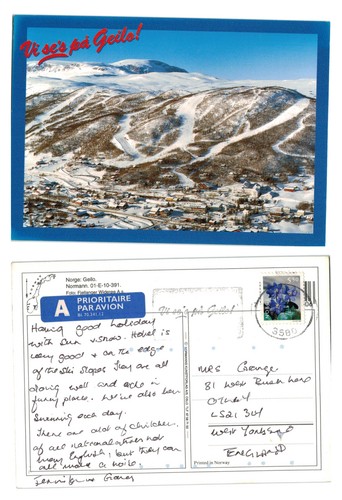 Vi se's på Geilo!
Norge: Geilo.
Normann, 01-E-10-391.
Foto: Fjellanger Widerøe A.s
A PRIORITAIRE
PAR AVION
BL 70.141 / 2
Vi se's på Geilo!
3580
Having good holiday
with sun & snow. Hotel is
very good & on the edge
of the Ski Slopes They are all
doing well and echo in
funny place. We've also been
Swimming each day.
There are alot of children,
of all nationalities not
many English, but they can
all make a noise.
MRS George
81 West Busk Lane
OTLEY
LS21 3LY
West Yorkshire
ENGLAND
Printed in Norway